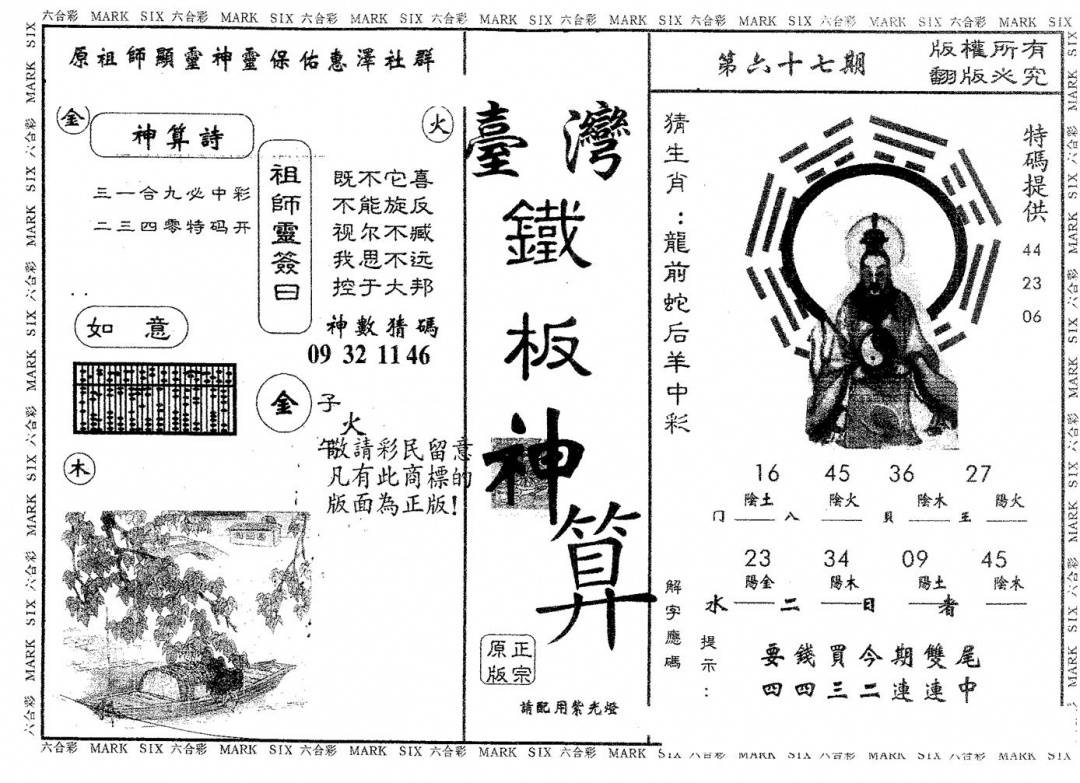 六合彩 MARK SIX 六合彩 MARK SIX 六合彩 MARK SIX 六合彩 MARK SIX 六合彩 MARK SIX 六合彩 MARK SIX 六合彩 MARK SIX 六合彩 MARK SIX
原祖師顯靈神靈保佑惠澤社群
金
神算詩
火
三一合九必中彩
二三四零特码开
祖師靈簽曰
既不它喜
不能旋反
视尔不臧
我思不远
控于大邦
神數猜碼
09 32 11 46
如 意
金
子
火
午
敬請彩民留意
凡有此商標的
版面為正版!
木
臺灣
鐵
板
神
算
正宗
原版
請配用紫光燈
第六十七期
版權所有
翻版必究
猜生肖:龍前蛇后羊中彩
特碼提供
44
23
06
16 45 36 27
陰土 陰火 陰木 陽火
门 八 貝 王
23 34 09 45
陽金 陽木 陽土 陰水
水 二 日 者
解字應碼
提示:
要錢買今期雙尾
四四三二連連中
六合彩 MARK SIX 六合彩 MARK SIX 六合彩 MARK SIX 六合彩 MARK SIX 六合彩 MARK SIX